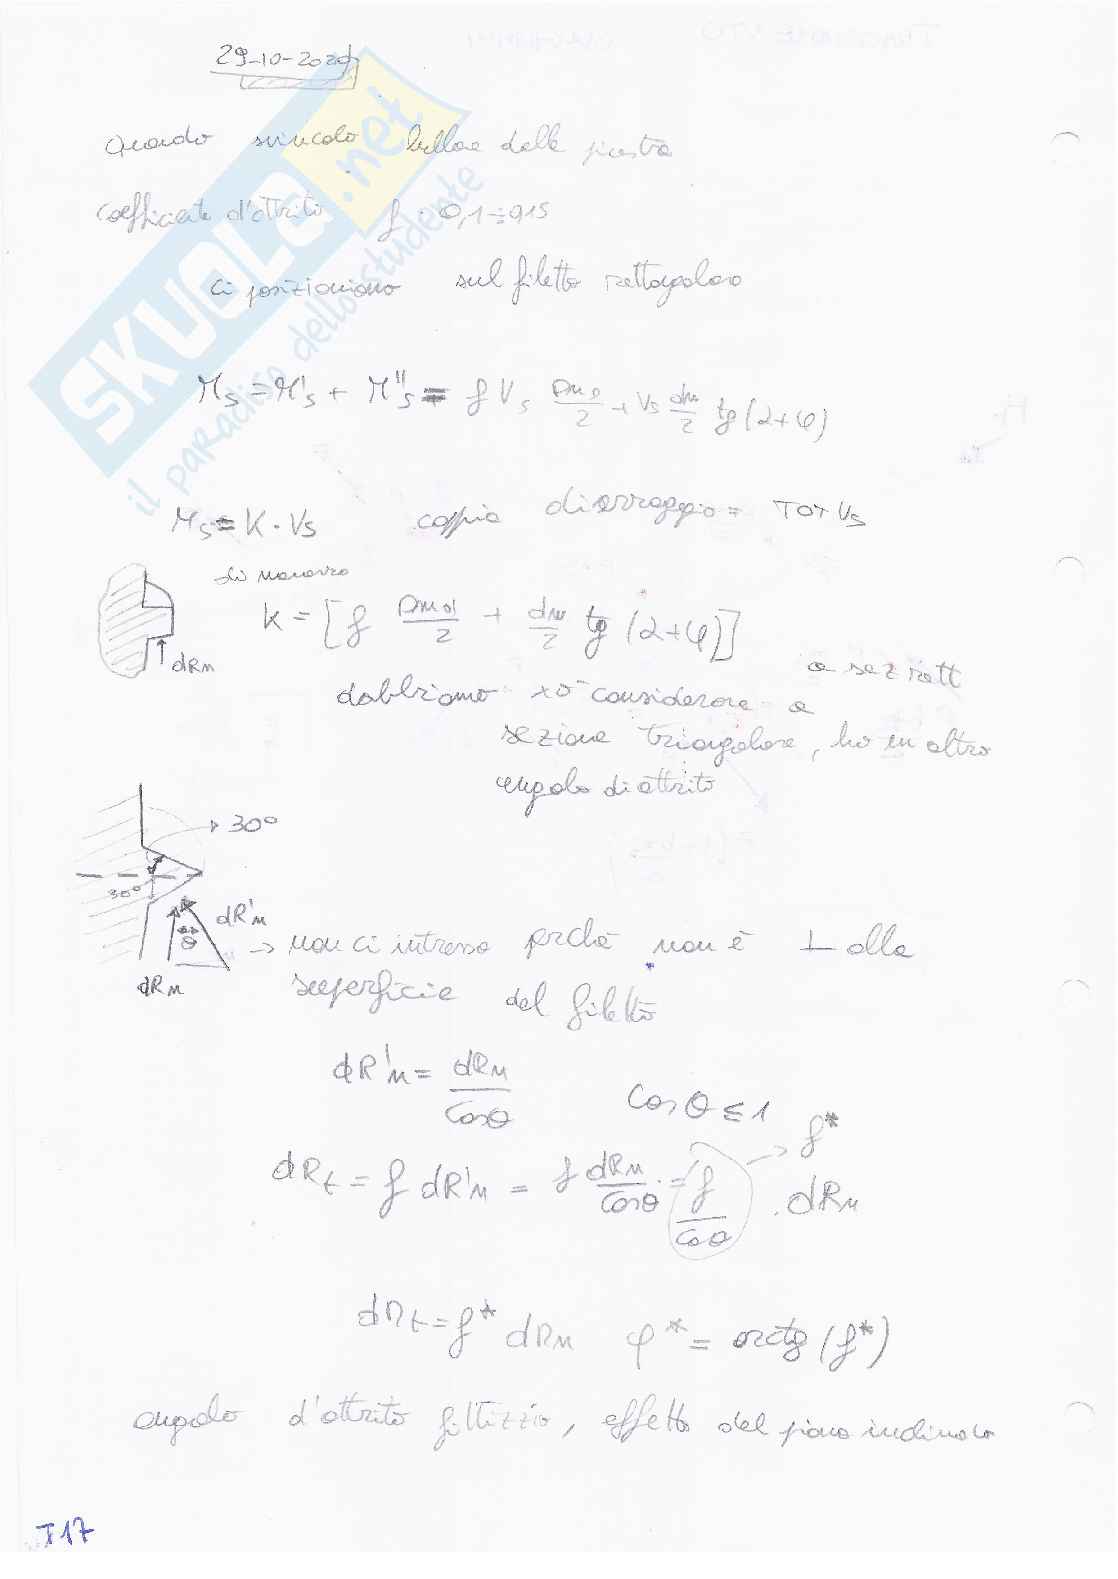 29-10-2020
Quando svincolo bullone dalla piastra
Coefficiente d'attrito f: 0,1÷0,15
Ci posizioniamo sul filetto rettangolare
Ms = M's + M''s = f Vs Dmd/2 + Vs dm/2 tg(α+φ)
Ms = K · Vs coppia di serraggio = TOT Vs
di manovra
K = [f Dmd/2 + dm/2 tg(α+φ)]
dRn
a sez rett
dobbiamo considerare a
sezione triangolare, ho un altro
angolo di attrito
30°
30°
dR'n
θ
dRn
→ non ci interessa perché non è ⊥ alla
superficie del filetto
dR'n = dRn/cosθ cosθ ≤ 1
f*
dRt = f dR'n = f dRn/cosθ = f/cosθ · dRn
dRt = f* dRn φ* = arctg(f*)
angolo d'attrito fittizio, effetto del piano inclinato
I17
SKUOLA.net
il paradiso dello studente